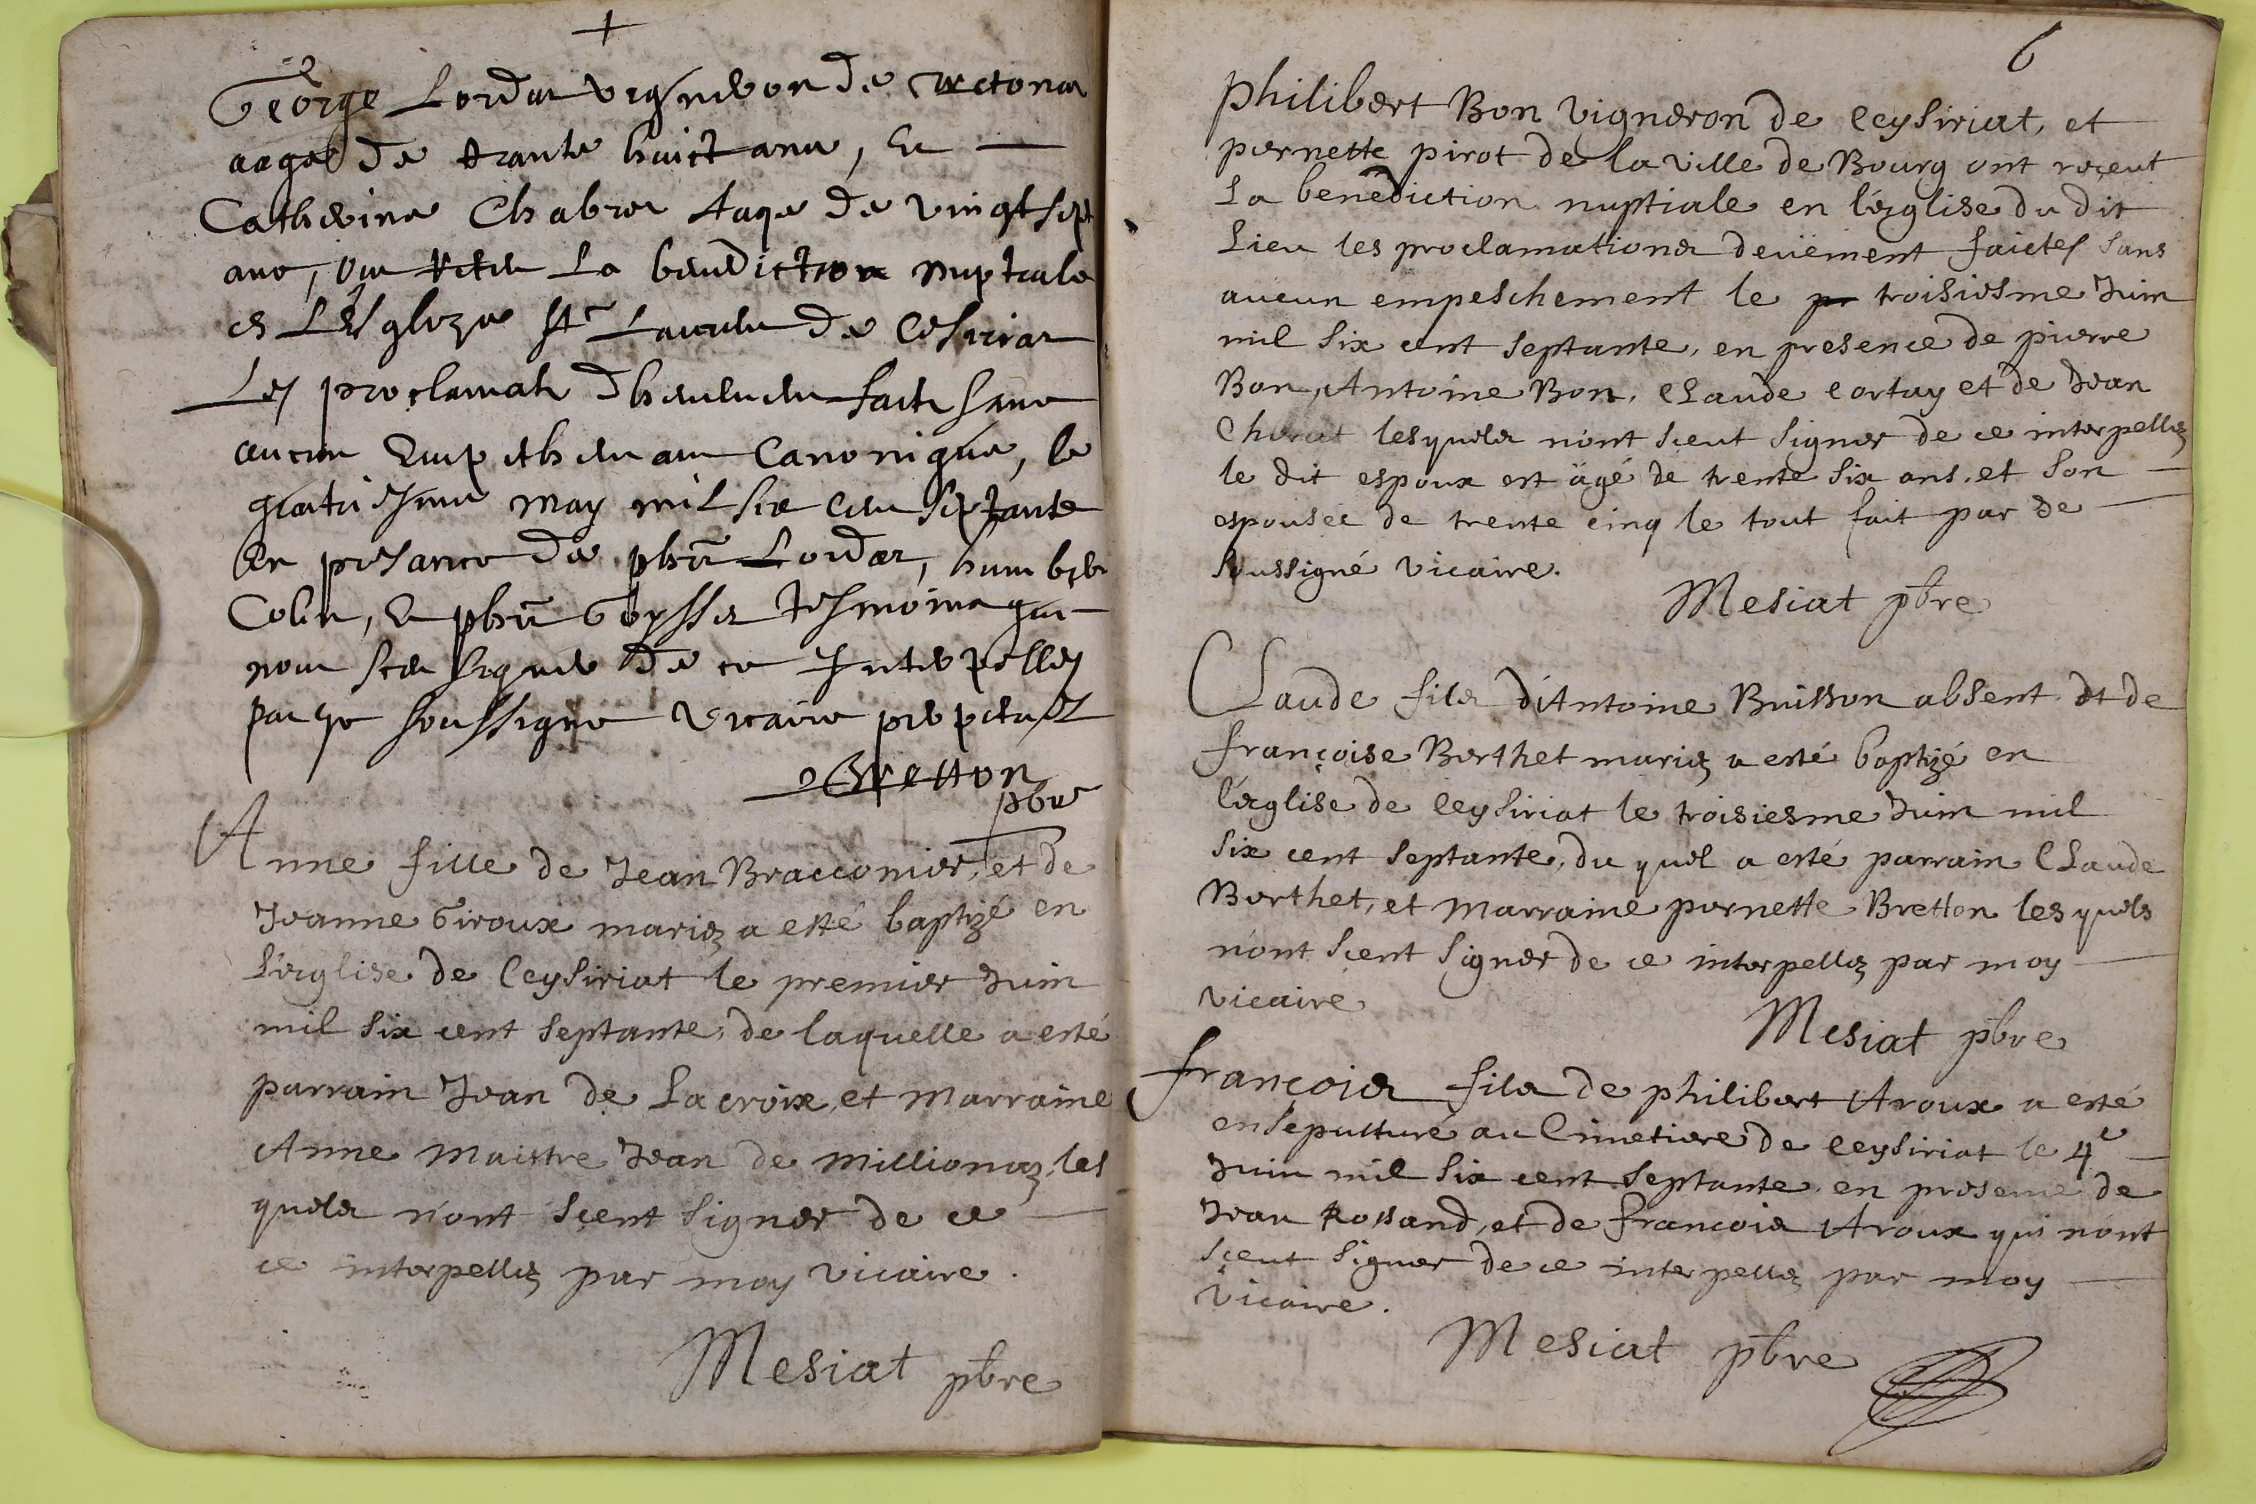 +
George Lordet vigneron de
aagé de trante huict ans, Et
Catherine Chabret aage de vingt sept
ans, ont receu La benediction nuptiale
en L'esglize St Laurent de Cesiriat
Les proclamat dheuement faite sans
aucun Empechement Canonique, le
quatriesme may mil six cent septante
En presance de phT Lordet, humbert
Colin, Et phT Goysset tesmoins qui
nont sceu signer de ce Interpelles
par Je soussigne Vicaire perpetuel
Bretton
pbre
Anne fille de Jean Bracconier, et de
Jeanne Giroux mariez a esté baptizé en
L'eglise de Ceysiriat le premier Juin
mil six cent septante, de laquelle a esté
parrain Jean de Lacroix, et Marraine
Anne Maistre Jean de Millionaz, les
quels n'ont sçeut signer de ce
ce interpellez par moy vicaire.
Mesiat pbre
6
Philibert Bon vigneron de Ceysiriat, et
pernette pirot de la ville de Bourg ont reçeut
La benediction nuptiale en l'eglise du dit
Lieu les proclamations deüement faictes sans
aucun empeschement le pr troisiesme Juin
mil six cent septante, en presence de pierre
Bon, Antoine Bon, Claude Cortay et de Jean
Cherat lesquels n'ont sçeut signer de ce interpellez
le dit espoux est âgé de trente six ans, et son
espousée de trente cinq le tout fait par de
soussigné vicaire.
Mesiat pbre
Claude fils d'Antoine Buisson absent et de
françoise Berthet mariez a esté baptizé en
l'eglise de Ceysiriat le troisiesme Juin mil
six cent septante, du quel a esté parrain Claude
Berthet, et Marraine pernette Bretton les quels
n'ont sçeut signer de ce interpellez par moy
vicaire
Mesiat pbre
françois fils de philibert Aroux a esté
ensepulturé au Cimetiere de Ceysiriat le 4e
Juin mil six cent septante en presence de
Jean Rossand, et de françois Aroux qui n'ont
sçeut signer de ce interpellez par moy
vicaire.
Mesiat pbre